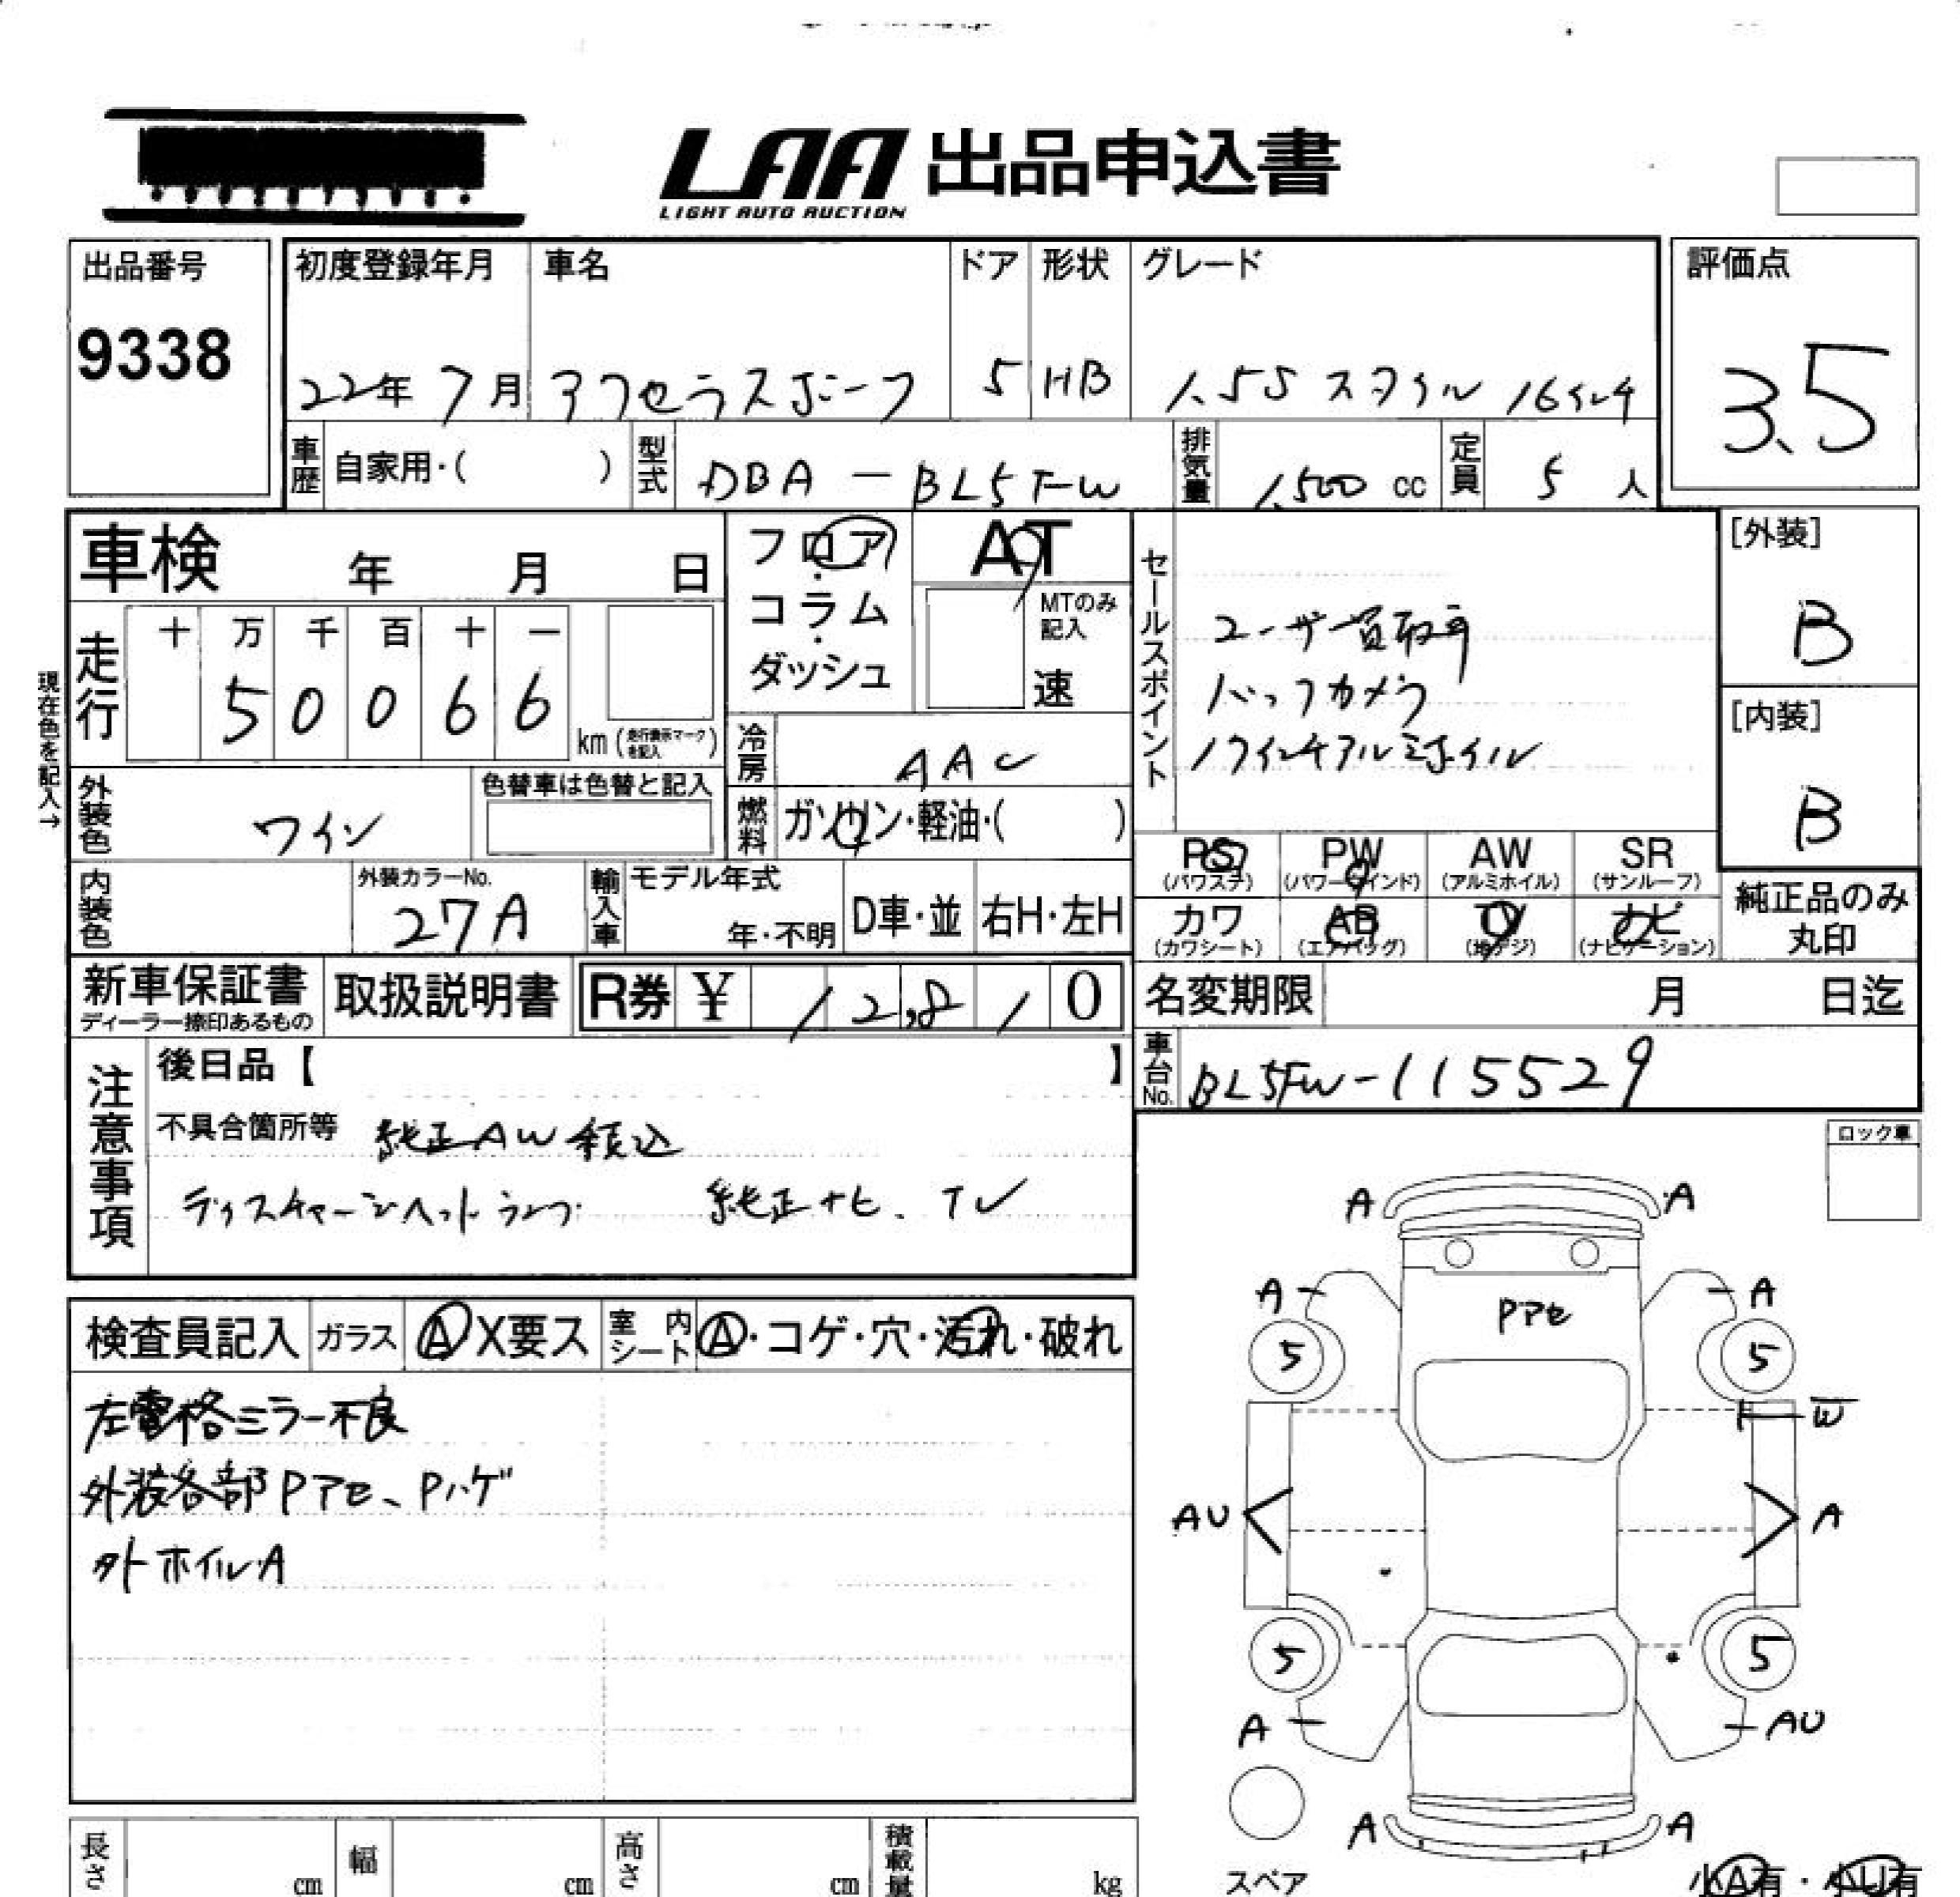 LAA 出品申込書
LIGHT AUTO AUCTION
出品番号
9338
初度登録年月
22年 7月
車名
アクセラスポーツ
ドア
5
形状
HB
グレード
1.5S スタイル 16インチ
評価点
3.5
車歴 自家用・( )
型式 DBA-BL5FW
排気量 1,500 cc
定員 5 人
車検 年 月 日
フロア・コラム・ダッシュ
AT
MTのみ記入
速
走行
十 万 千 百 十 一
5 0 0 6 6
km (走行表示マークを記入)
現在色を記入→
冷房 AAC
外装色 ワイン
色替車は色替と記入
燃料 ガソリン・軽油・( )
内装色
外装カラーNo.
27A
輸入車
モデル年式
年・不明
D車・並
右H・左H
セールスポイント
ユーザー買取車
バックカメラ
17インチアルミホイル
[外装]
B
[内装]
B
PS (パワステ)
PW (パワーウインド)
AW (アルミホイル)
SR (サンルーフ)
カワ (カワシート)
AB (エアバッグ)
TV (地デジ)
ナビ (ナビゲーション)
純正品のみ丸印
新車保証書
ディーラー捺印あるもの
取扱説明書
R券 ¥ 12,810
名変期限 月 日迄
車台No. BL5FW-115529
注意事項
後日品【 】
不具合箇所等 純正AW積込
ディスチャージヘッドランプ 純正ナビ、TV
ロック車
検査員記入
ガラス A X要ス
室内シート A・コゲ・穴・汚れ・破れ
左電格ミラー不良
外装各部Pアセ、Pハゲ
外ホイルA
A A
A Pアセ A
5 5
W
AU A
5 5
A AU
A A
スペア
小A有・小U有
長さ cm
幅 cm
高さ cm
積載量 kg